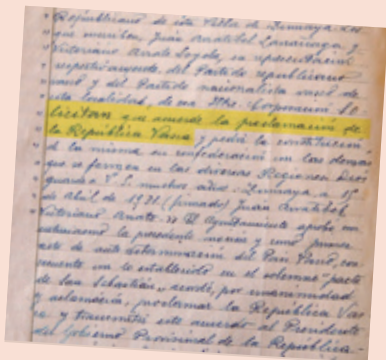 Republicano de esta Villa de Zumaya Los
que suscriben, Juan Aristibel Larrañaga y
Victoriano Anate Loyola, en representación
respectivamente, del Partido republicano
vasco y del Partido nacionalista vasco de
esta localidad, de esa Iltre. Corporación so-
licitan que acuerde la proclamación de
la República Vasca y pedir la constitución
de la misma en confederación con las demas
que se formen en las diversas Regiones Dios
guarde a V.S. muchos años. Zumaya a 15
de Abril de 1931 (firmado) Juan
Victoriano Anate. El Ayuntamiento apoya con
entusiasmo la presente y como primer
acto de auto determinación del País Vasco, con-
secuente con lo establecido en el solemne "pacto
de San Sebastián" acordó, por unanimidad
y aclamación, proclamar la República Vas-
ca y transmitir este acuerdo al Presidente
del Gobierno Provisional de la República.-